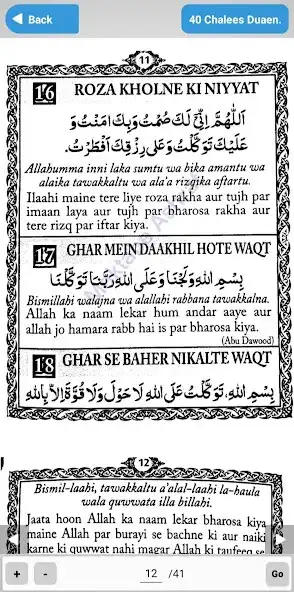 Back
40 Chalees Duaen.
11
16 ROZA KHOLNE KI NIYYAT
اَللّٰهُمَّ اِنِّیْ لَكَ صُمْتُ وَبِكَ اٰمَنْتُ وَ
عَلَیْكَ تَوَكَّلْتُ وَعَلٰی رِزْقِكَ اَفْطَرْتُ.
Allahumma inni laka sumtu wa bika amantu wa
alaika tawakkaltu wa ala'a rizqika aftartu.
Ilaahi maine tere liye roza rakha aur tujh par
imaan laya aur tujh par bharosa rakha aur
tere rizq par iftar kiya.
17 GHAR MEIN DAAKHIL HOTE WAQT
بِسْمِ اللهِ وَلَجْنَا وَعَلَی اللهِ رَبِّنَا تَوَكَّلْنَا
Bismillahi walajna wa alallahi rabbana tawakkalna.
Allah ka naam lekar hum andar aaye aur
allah jo hamara rabb hai is par bharosa kiya.
(Abu Dawood)
18 GHAR SE BAHER NIKALTE WAQT
بِسْمِ اللهِ، تَوَكَّلْتُ عَلَی اللهِ لَا حَوْلَ وَلَا قُوَّةَ اِلَّا بِاللهِ
12
Bismil-laahi, tawakkaltu a'alal-laahi la-haula
wala quwwata illa billahi.
Jaata hoon Allah ka naam lekar bharosa kiya
maine Allah par burayi se bachne ki aur naiki
karne ki quwwat nahi magar Allah ki taufeeq se
+ - 12 /41 Go